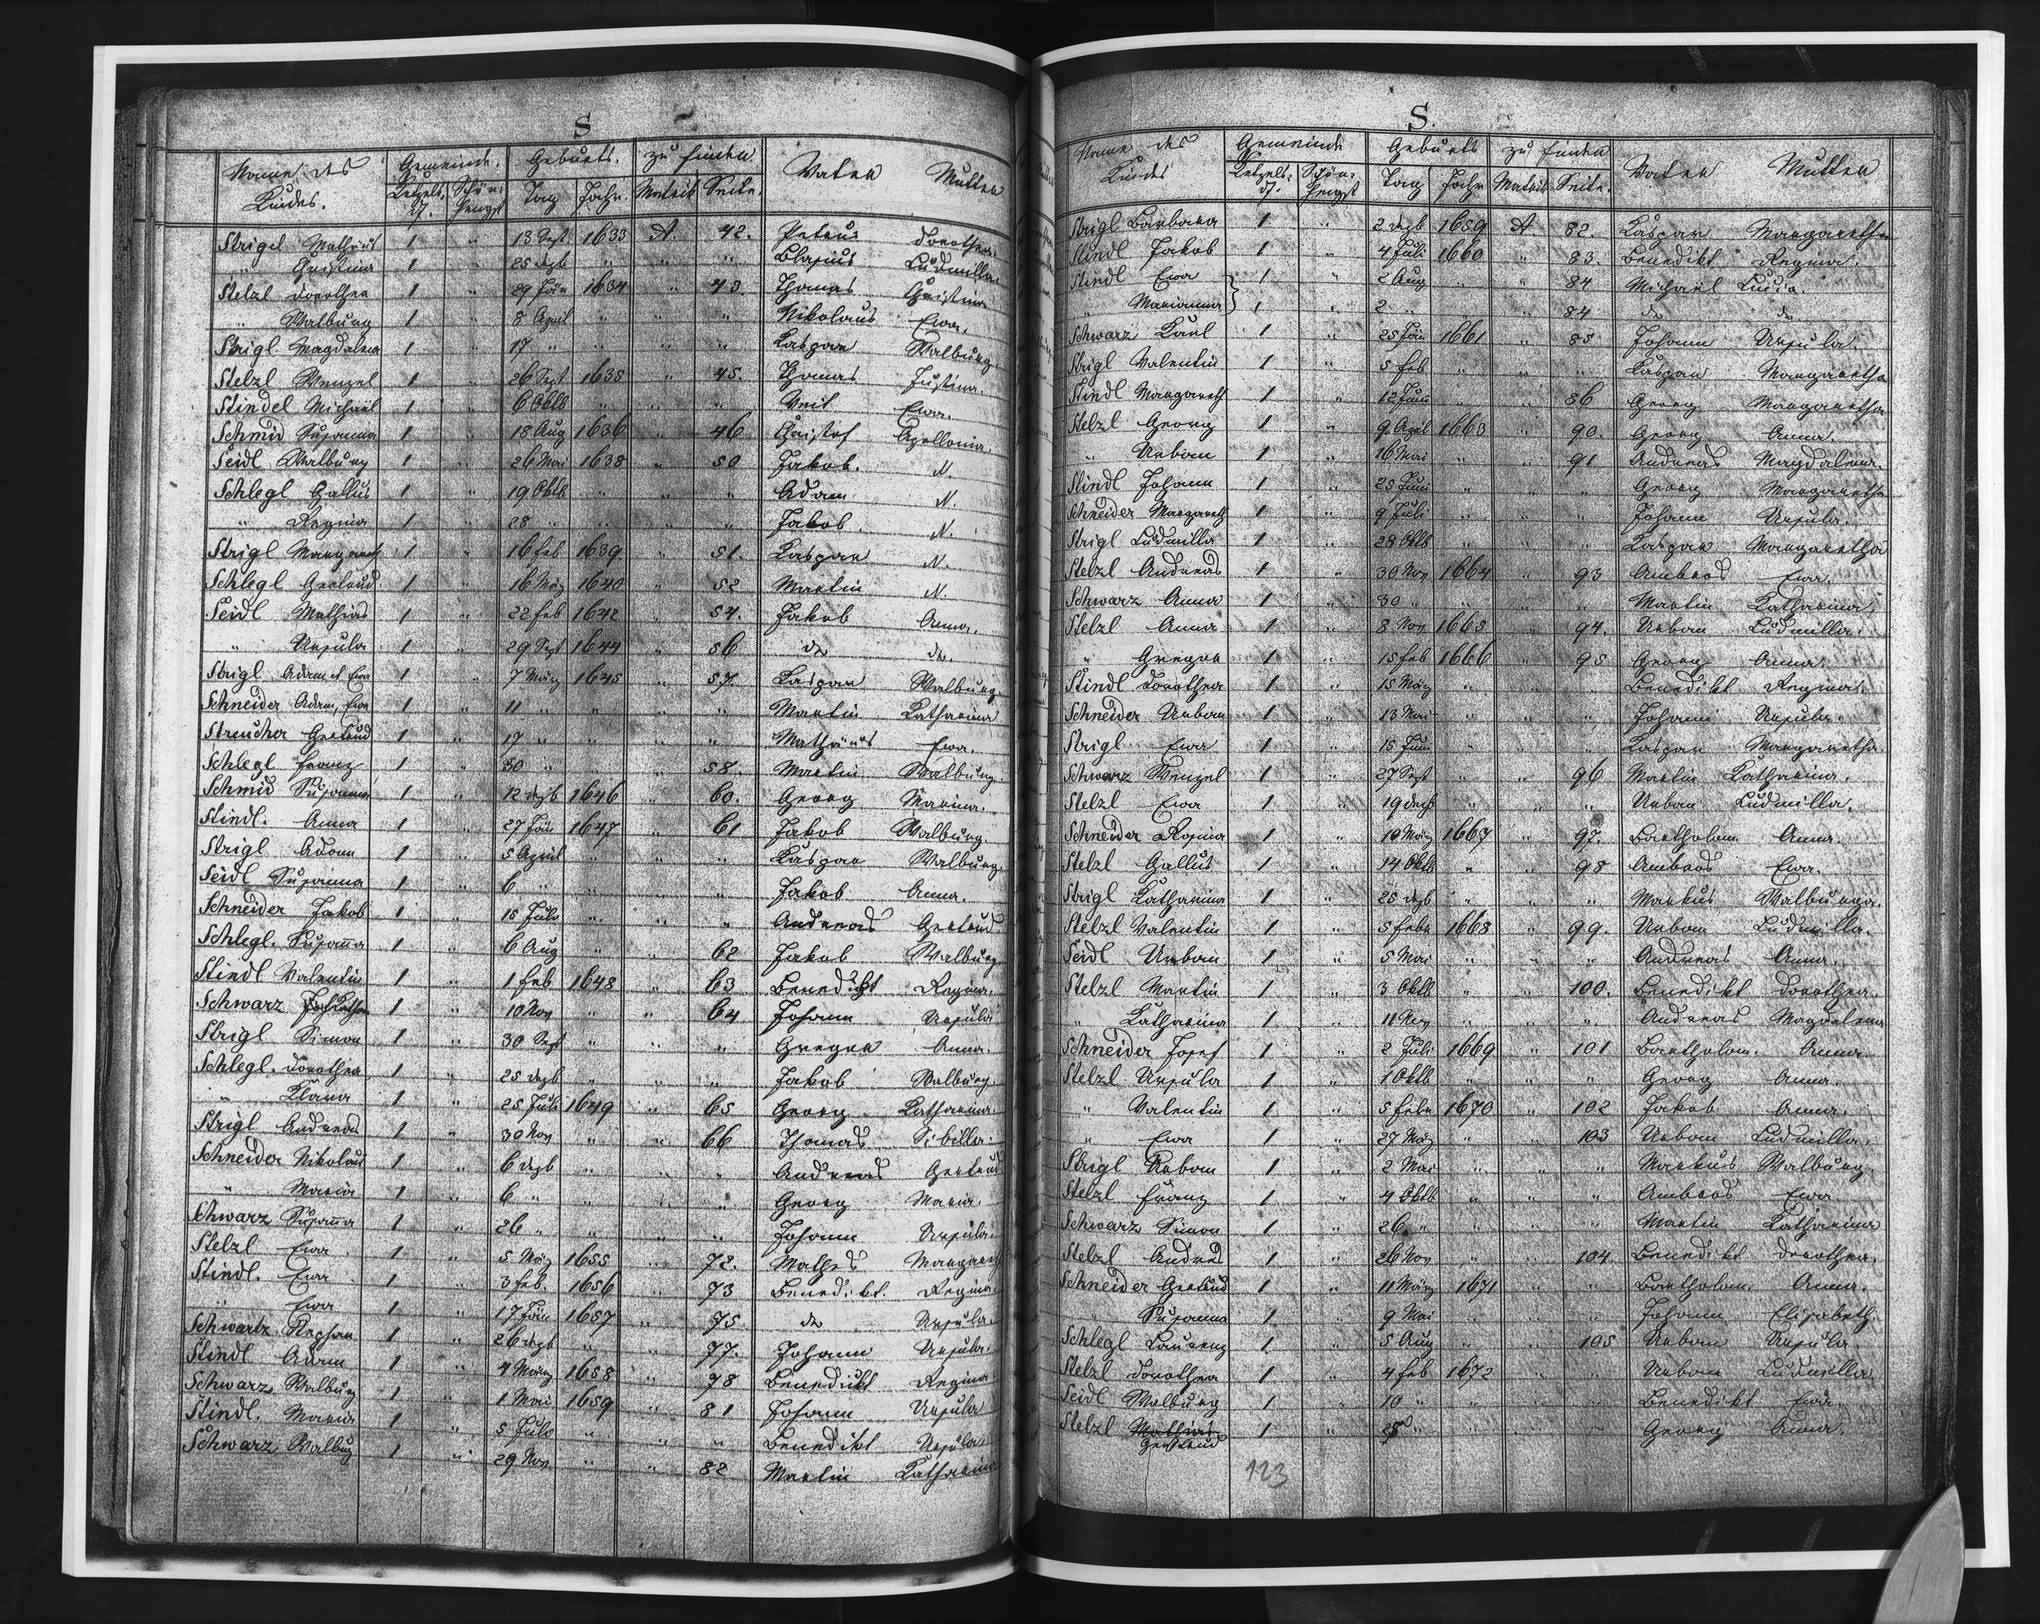 S
Name des Kindes. Gemeinde. Geburts. zu finden Vater Mutter
Ketzels-df. Schön-hengst Tag Jahr. Matrik Seite.
Strigel Mathias 1 " 13 Sept. 1633 A. 42. Petrus Dorothea.
" Christina 1 " 25 dezb " " " Blasius Ludmilla.
Stelzl Dorothea 1 " 29 Jän 1634 " 43. Thomas Christina
" Walburg 1 " 8 April " " " Nikolaus Ewa.
Strigl Magdalena 1 " 17 " " " " Kaspar Walburg.
Stelzl Wenzel 1 " 26 Sept 1635 " 45. Thomas Justina.
Stindel Michael 1 " 6 Oktb " " " Veit Ewa.
Schmid Susanna 1 " 18 Aug 1636 " 46 Christof Apollonia.
Seidl Walburg 1 " 26 Mai 1638 " 50 Jakob. N.
Schlegl Gallus 1 " 19 Oktb " " " Adam N.
" Regina 1 " 28 " " " " Jakob. N.
Strigl Margareth 1 " 16 feb 1639 " 51. Kaspar N.
Schlegl Gertrud 1 " 16 März 1640 " 52 Martin N.
Seidl Mathias 1 " 22 feb 1642 " 54. Jakob Anna.
" Ursula 1 " 29 Sept 1644 " 56 do do.
Strigl Adam et Ewa 1 " 7 März 1645 " 57. Kaspar Walburg.
Schneider Adam, Ewa 1 " 11 " " " " Martin Katharina
Streücher Gertrud 1 " 17 " " " " Mathäus Ewa.
Schlegl Franz 1 " 30 " " " 58. Martin Walburg
Schmid Susanna 1 " 12 dezb 1646 " 60. Georg Marina.
Stindl. Anna 1 " 27 Jän 1647 " 61 Jakob Walburg.
Strigl Adam 1 " 5 April " " " Kaspar Walburg.
Seidl Susanna 1 " 6 " " " " Jakob Anna.
Schneider Jakob 1 " 15 Julo " " " Andreas Gertrud
Schlegl. Susanna 1 " 6 Aug " " 62 Jakob Walburg
Stindl Valentin 1 " 1 feb 1648 " 63 Benedikt Regina.
Schwarz Kath 1 " 10 Nov " " 64 Johann Ursula
Strigl Simon 1 " 30 Sept " " " Gregor Anna.
Schlegl. Dorothea 1 " 25 dezb " " " Jakob Walburg.
" Klara 1 " 25 Juli 1649 " 65 Georg Katharina.
Strigl Andreas 1 " 30 Nov " " 66 Thomas Sibilla.
Schneider Nikolaus 1 " 6 dezb " " " Andreas Gertrud
" Maria 1 " 6 " " " " Georg Maria.
Schwarz Susanna 1 " 26 " " " " Johann Ursula.
Stelzl Ewa 1 " 5 März 1655 " 72. Mathes Margareth
Stindl. Ewa 1 " 3 feb. 1656 " 73 Benedikt. Regina
" Ewa 1 " 17 Jän 1657 " 75. do Ursula.
Schwartz Stephan 1 " 26 dezb " " 77. Johann Ursula.
Stindl Adam 1 " 4 März 1658 " 78 Benedikt Regina
Schwarz Walburg 1 " 1 Mai 1659 " 81 Johann Ursula
Stindl. Maria 1 " 5 Julo " " " Benedikt Ursula
Schwarz Walburg 1 " 29 Nov " " 82 Martin Katharina
S.
Name des Kindes Gemeinde Geburts zu finden Vater Mutter
Ketzels-df. Schön-hengst Tag Jahr Matrik Seite.
Strigl Barbara 1 " 2 dezb 1659 A 82. Kaspar Margaretha
Stindl Jakob 1 " 4 Juli 1660 " 83. Benedikt Regina.
Stindl Ewa 1 " 2 Aug " " 84 Michael Lucia.
" Marianna 1 " 2 " " " 84 do do
Schwarz Karl 1 " 25 Jän 1661 " 85 Johann Ursula.
Strigl Valentin 1 " 5 feb " " " Kaspar Margaretha
Stindl Margareth 1 " 12 Juni " " 86 Georg Margaretha
Stelzl Georg 1 " 9 April 1663 " 90. Georg Anna.
" Urban 1 " 16 Mai " " 91 Andreas Magdalena.
Stindl Johann 1 " 25 Juni " " " Georg Margaretha
Schneider Margareth 1 " 9 Juli " " " Johann Ursula.
Strigl Ludmilla 1 " 28 Oktb " " " Kaspar Margaretha
Stelzl Andreas 1 " 30 Nov 1664 " 93 Ambros Ewa.
Schwarz Anna 1 " 30 " " " " Martin Katharina.
Stelzl Anna 1 " 8 Nov 1665 " 94. Urban Ludmilla.
" Gregor 1 " 15 feb 1666 " 95 Georg Anna.
Stindl Dorothea 1 " 15 März " " " Benedikt Regina.
Schneider Urban 1 " 13 Mai " " " Johann Ursula.
Strigl Ewa 1 " 15 Juni " " " Kaspar Margaretha
Schwarz Wenzel 1 " 27 Sept " " 96 Martin Katharina.
Stelzl Ewa 1 " 19 dezb " " " Urban Ludmilla.
Schneider Rosina 1 " 10 März 1667 " 97. Bartholom. Anna.
Stelzl Gallus 1 " 14 Oktb " " 98 Ambros Ewa.
Strigl Katharina 1 " 25 dezb " " " Markus Walburga.
Stelzl Valentin 1 " 5 febr 1668 " 99. Urban Ludmilla.
Seidl Urban 1 " 5 Mai " " " Andreas Anna.
Stelzl Martin 1 " 3 Oktb " " 100. Benedikt Dorothea.
" Katharina 1 " 11 Nov " " " Andreas Magdalena
Schneider Josef 1 " 2 Juli 1669 " 101 Bartholom. Anna.
Stelzl Ursula 1 " 1 Oktb " " " Georg Anna.
" Valentin 1 " 5 febr 1670 " 102 Jakob Anna.
" Ewa 1 " 27 März " " 103 Urban Ludmilla.
Strigl Urban 1 " 2 Mai " " " Markus Walburg.
Stelzl Franz 1 " 4 Oktb " " " Ambros Ewa
Schwarz Simon 1 " 26 " " " " Martin Katharina
Stelzl Andreas 1 " 26 Nov " " 104. Benedikt Dorothea.
Schneider Gertrud 1 " 11 März 1671 " " Bartholom. Anna.
Susanna 1 " 9 Mai " " " Johann Elisabeth.
Schlegl Laurenz 1 " 5 Aug " " 105 Urban Ursula.
Stelzl Dorothea 1 " 4 feb 1672 " " Urban Ludmilla
Seidl Walburg 1 " 10 " " " " Benedikt Ewa.
Stelzl Mathias Gertrud 1 " 25 " " " " Georg Anna.
123